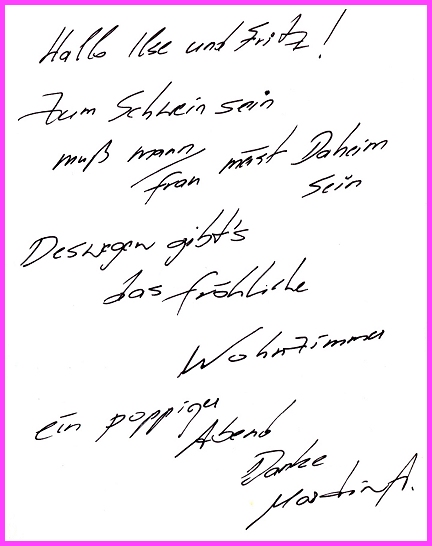 Hallo Ilse und Fritz!
Zum Schwein sein
muß mann/frau mäst Daheim
sein
Deswegen gibt's
das fröhliche
Wohnzimmer
ein poppiger
Abend
Danke
Martin A.